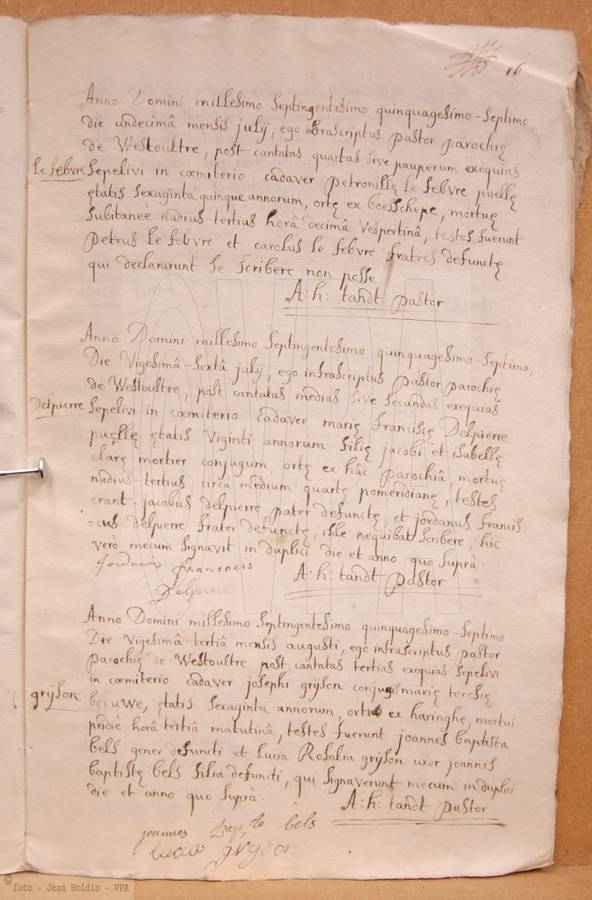 16
Anno Domini millesimo septingentesimo quinquagesimo-septimo,
die undecimâ mensis julÿ, ego infrascriptus pastor parochię
de Westoultre, post cantatas quartas sive pauperum exequias
le febvre sepelivi in cœmiterio cadaver petronillę le febvre, puellę
ętatis sexaginta quinque annorum, ortę ex boesschepe, mortuę
subitaneè nudius-tertius horâ decimâ vespertinâ, testes fuerunt
petrus le febvre et carolus le febvre fratres defunctę
qui declararunt se scribere non posse
A: h: tandt pastor
Anno Domini millesimo septingentesimo quinquagesimo-septimo,
Die vigesimâ-sextâ julÿ, ego infrascriptus pastor parochię
de Westoultre, post cantatas medias sive secundas exequias
delpierre sepelivi in cœmiterio cadaver marię franciscę Delpierre
puellę ętatis viginti annorum filię jacobi et isabellę
clarę mortier conjugum, ortę ex hâc parochiâ, mortuę
nudius-tertius circa medium quartę pomeridianę, testes
erant jacobus delpierre, pater defunctę, et jordanus francis=
=cus delpierre frater defunctę, ille nequibat scribere, hic
verò mecum signavit in duplici die et anno quo suprà.
francois
A: h: tandt pastor
Delpierre
Anno Domini millesimo septingentesimo quinquagesimo-septimo
Die vigesimâ-tertiâ mensis augusti, ego infrascriptus pastor
parochię de Westoultre post cantatas tertias exequias sepelivi
in cœmiterio cadaver josephi grÿson conjugis marię teresię
grÿson becuwe, ętatis sexaginta annorum, orti ex haringhe, mortui
pridiè horâ tertiâ matutinâ, testes fuerunt joannes baptista
bels gener defuncti et Lucia Rosalia grÿson uxor joannis
baptistę bels filia defuncti, qui signaverunt mecum in duplici
die et anno quo suprà.
A: h: tandt pastor
joannes Bap,te bels
lucia gryson
© foto - Jean Boidin - VPA